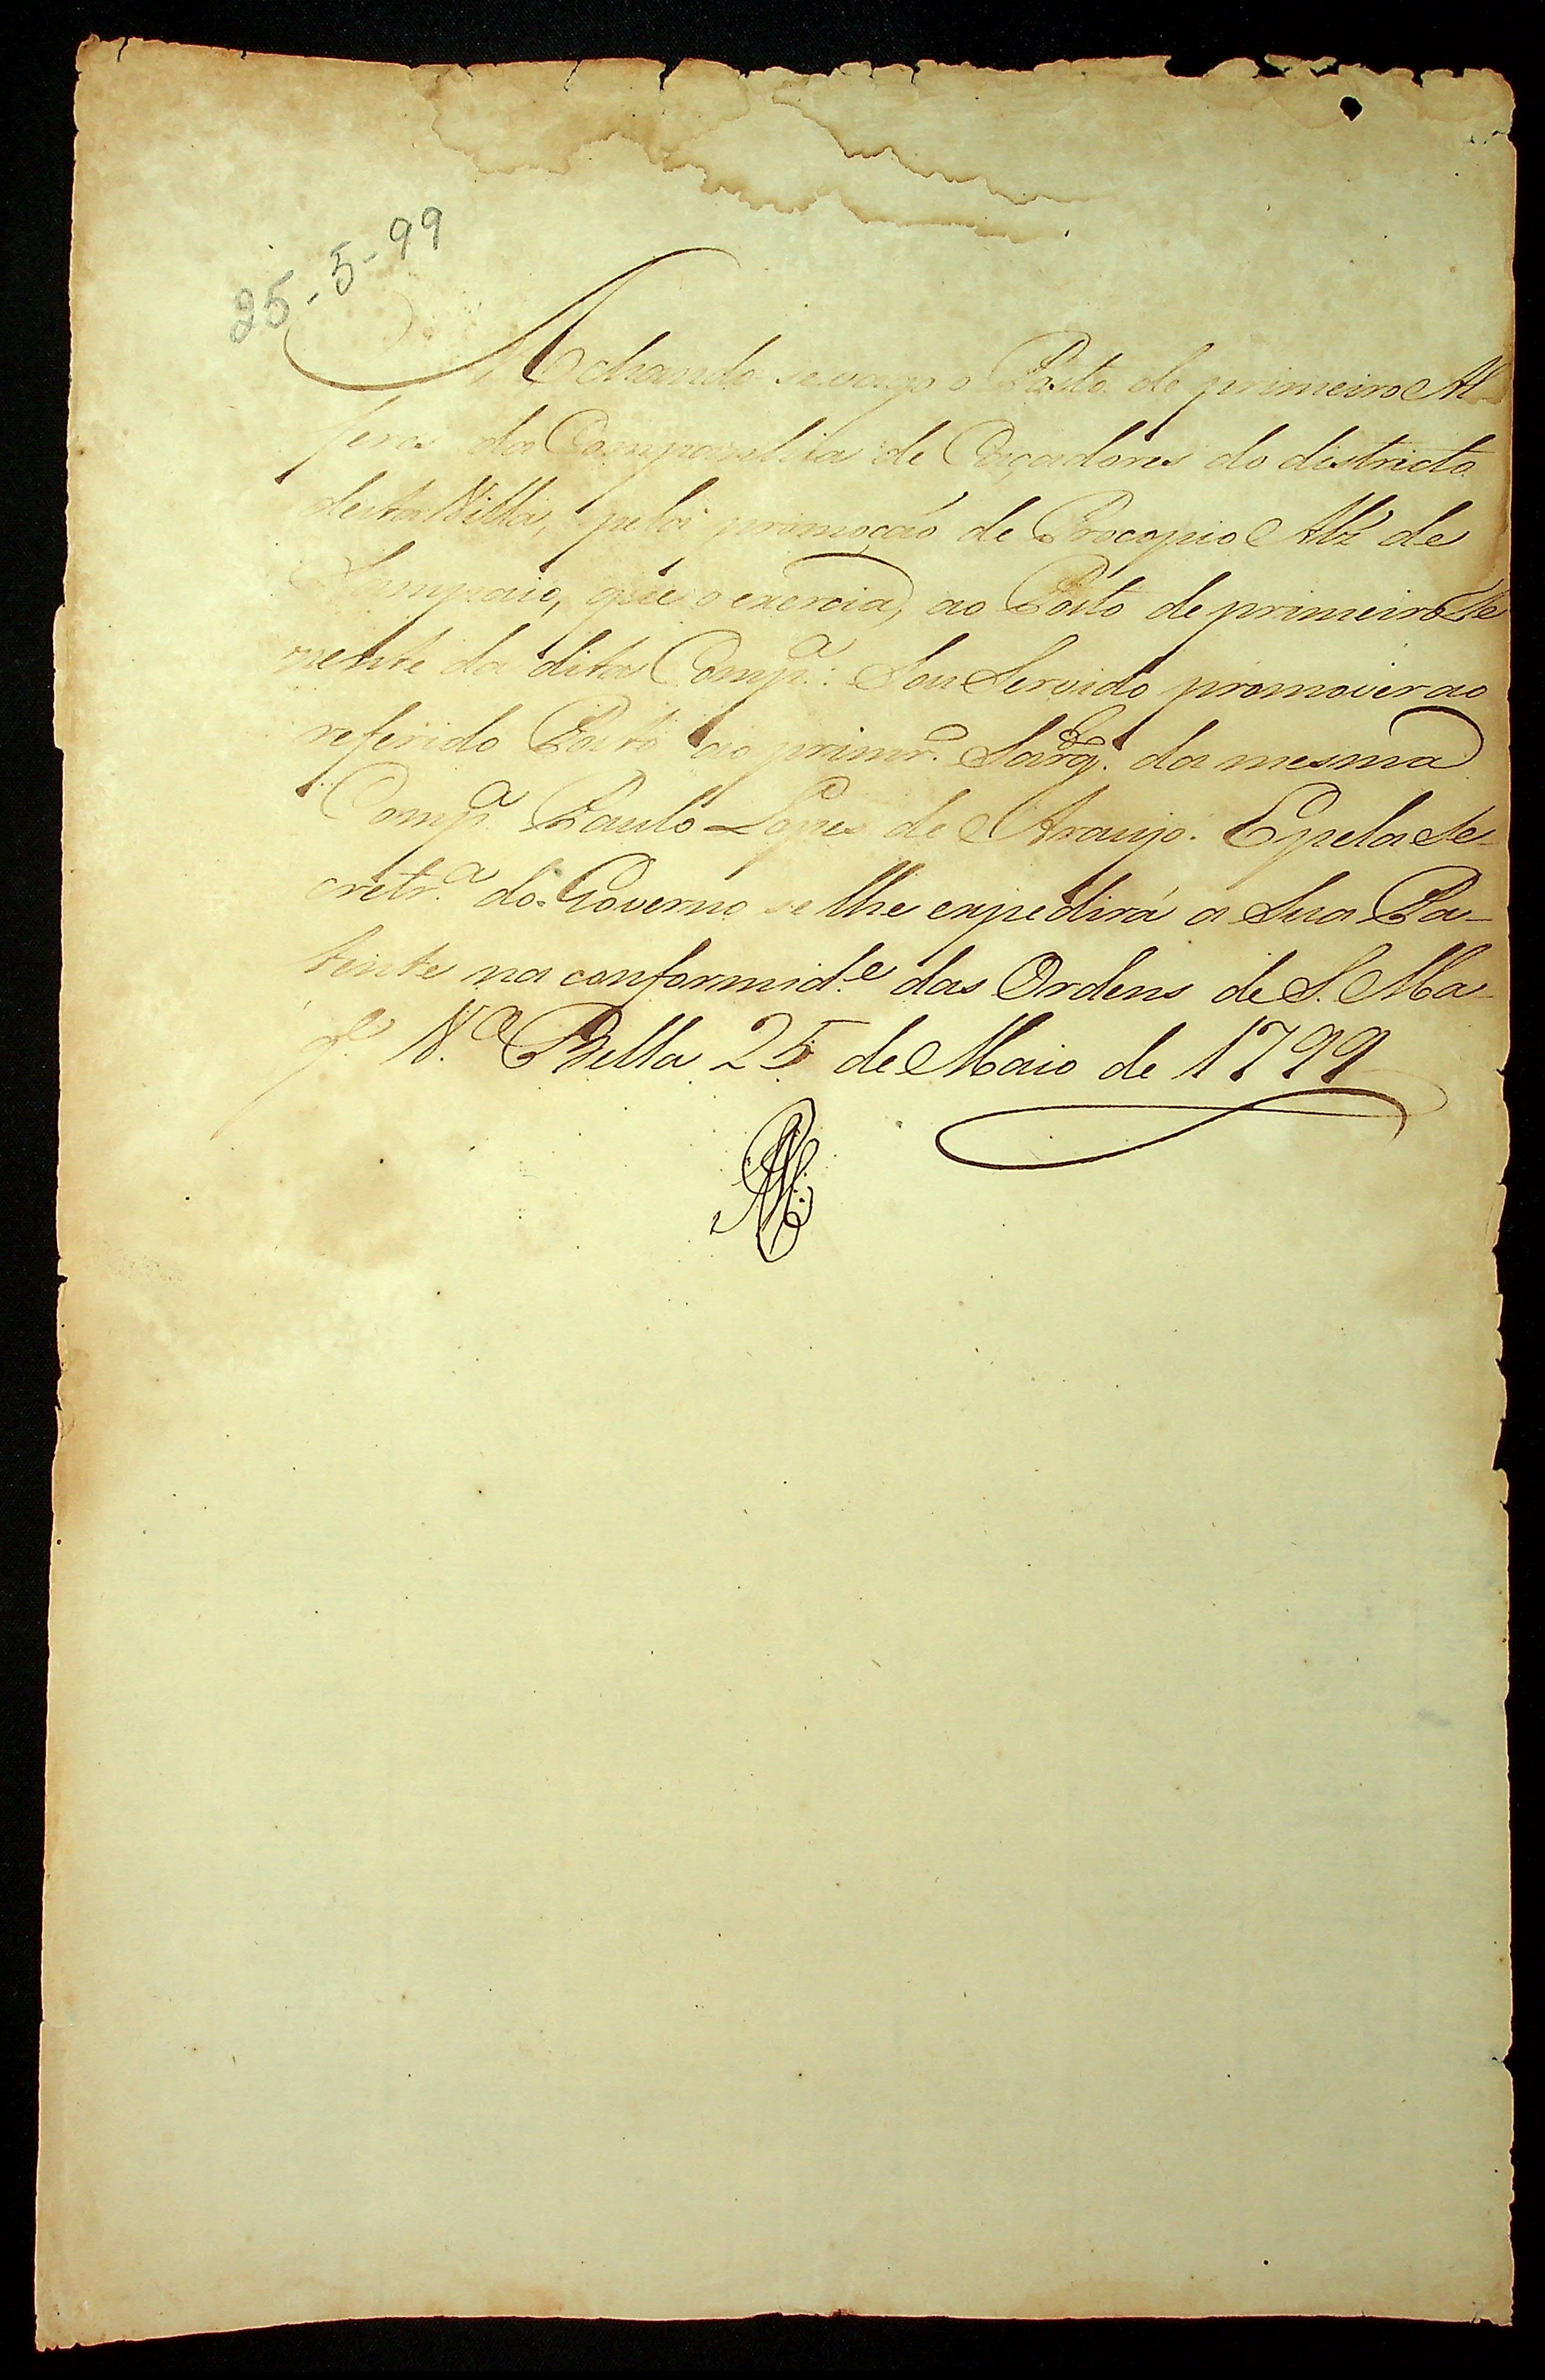 25-5-99
Achando se vago o Posto de primeiro Al-
feres da Companhia de Caçadores do districto
desta Villa, pela promoção de Procopio Alz' de
Sampaio, que o exercia, ao Posto de primeiro Te
nente da dita Comp.ª: Sou Servido promover ao
referido Posto ao primr.º Sarg.to da mesma
Comp.ª Paulo Lopes de Araujo. E pela Se-
cretr.ª do Governo se lhe expedirá a Sua Pa-
tente na conformid.e das Ordens de S. Ma-
g.e V.ª Bella 25 de Maio de 1799